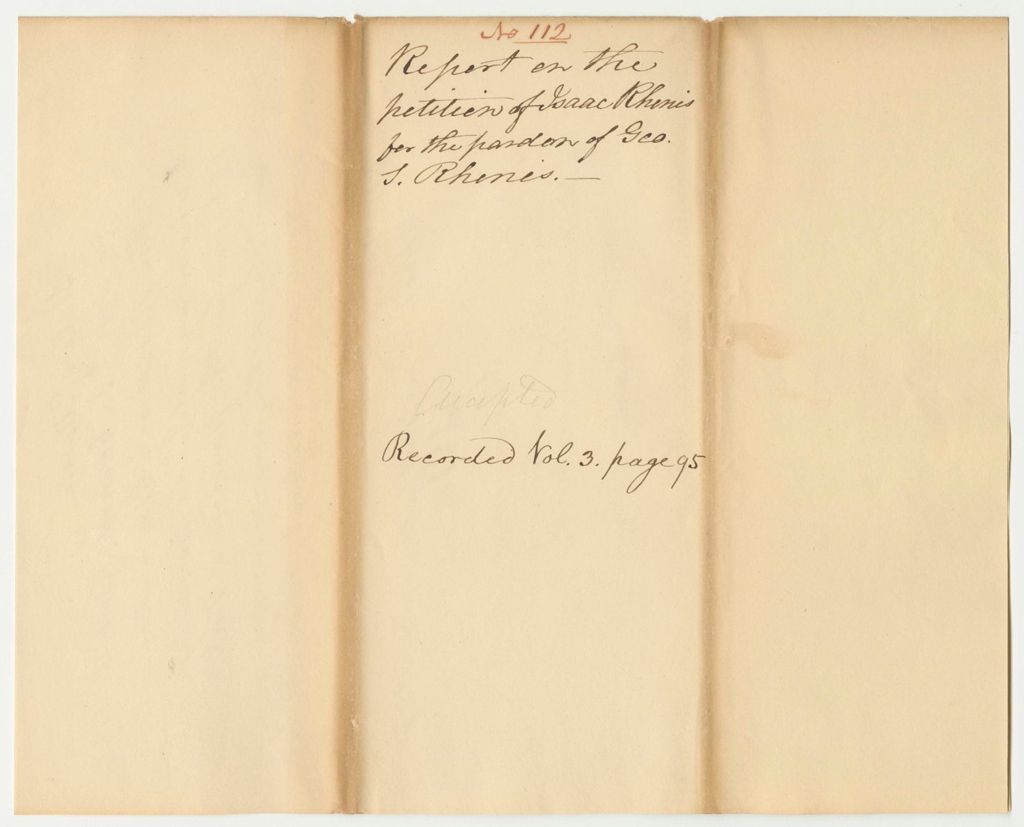 No 112
Report on the
petition of Isaac Rhenis
for the pardon of Geo.
S. Rhenis. —
Accepted
Recorded Vol. 3. page 95